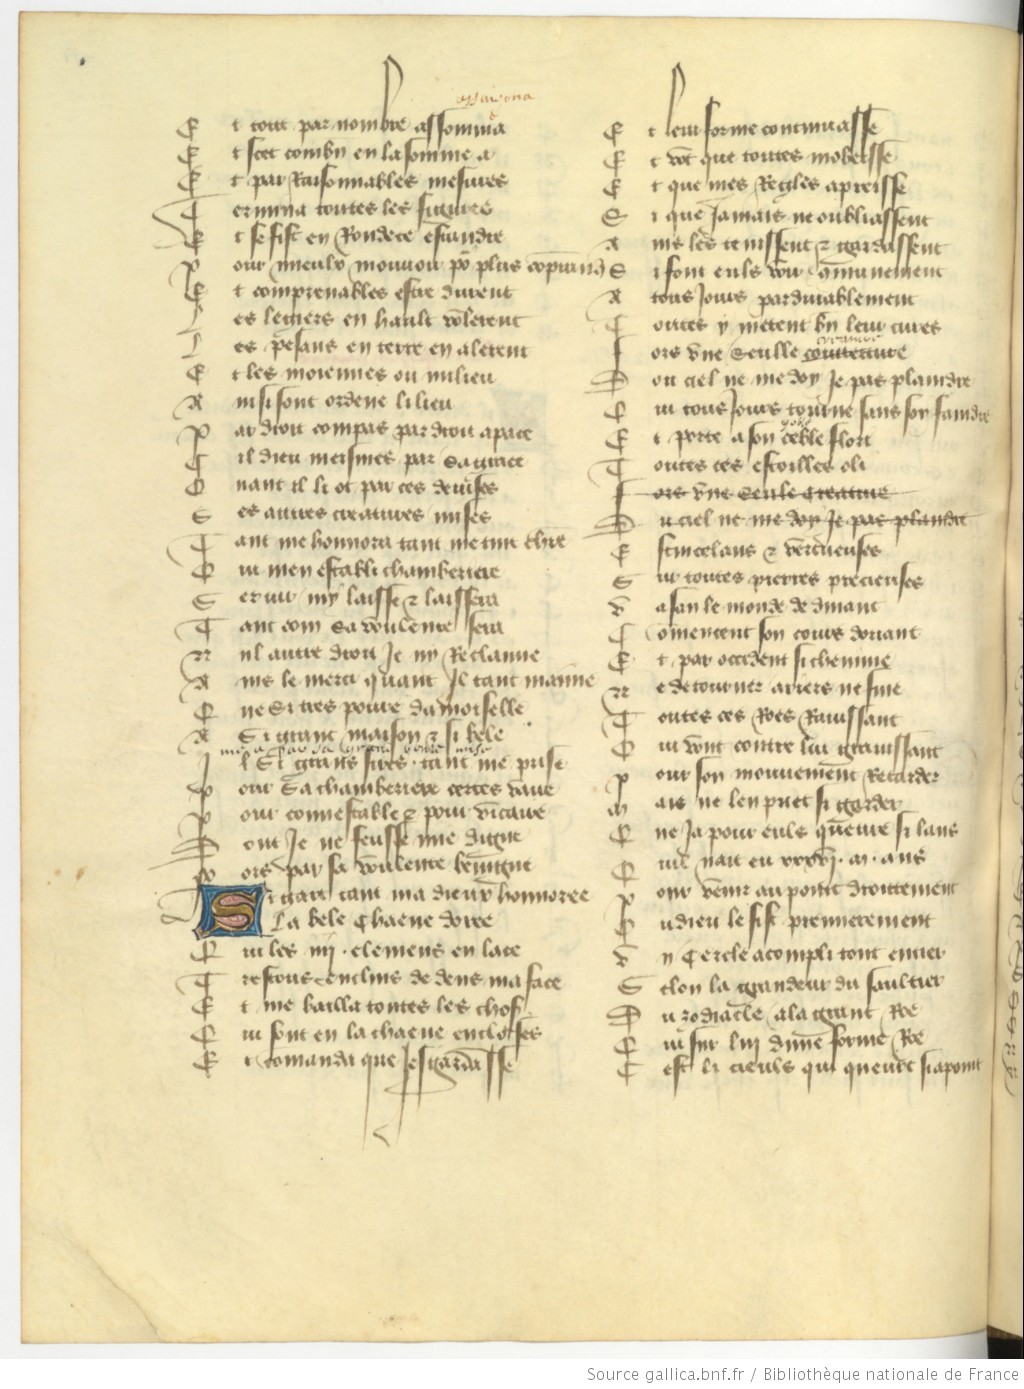 Et tout par nombre assomma
Et scet combn en la somme a
Et par Raisonnables mesures
Termina toutes les figures
Et se fist en Rondece estandre
Pour mieulx mouvoir po plus
Et comprenables estre durent
Les legiers en hault volerent
Les pesans en terre en alerent
Et les moiennes ou milieu
Ainsi sont ordene li lieu
Par droit compas par droit apace
Cil dieu meismes par sa grace
Quant il li ot par ces devises
Ses autres creatures mises
Tant me honnora tant me tint chiere
Qui men establi chamberiere
Servir my laisse et laissera
Tant com sa voulente sera
Nul autre droit Je ny Reclaime
Ains le merci quant Il tant maime
Que Si tres povre damoiselle
A Si grant maison et si bele
Il Si grans sires tant me prise
Pour Sa chamberiere certes vaire
Pour connestable et pour vicaire
Dont Je ne feusse mie digne
Fors par sa voulente benigne
Si gart tant ma dieux honnoree
La bele Chaene doree
Qui les iiii . elemens en lace
Trestous enclins de dens ma face
Et me bailla toutes les choses
Qui sont en la chaene encloses
Et comanda que Jes gardasse
Et leur forme continuasse
Et volt que toutes mobeisse
Et que mes Regles apreisse
Si que Jamais ne oubliassent
Ains les tenissent et gardassent
Si font euls voir communement
A tous Jours pardurablement
Toutes y metent bn leur cures
creature
Fors vne Seulle couverture
Dou ciel ne me doy Je pas plaindre
Qui tous Jours tourne sans soy faindre
Et porte a son cercle flori
Toutes ces estoilles o li
Fors vne Seule Creature
Du ciel ne me doy Je pas plaindre
Estincelans et vertueuses
Sur toutes pierres precieuses
Va san le monde de dinant
Comencent son cours doriant
Et par occident sichemine
Ne de tourner ariers ne fine
Toutes ces Roes Ravissant
Qui vont contre lui gravissant
Pour son mouvement Retarder
Mais ne len puet si garder
Que Ja pour euls queure si lans
Pour venir au point droittement
Du dieu le fist premierement
Vn Cercle acompli tout entier
Selon la grandeur du saultier
Du zodiacle a la grant Roe
Qui sur lui dune forme Roe
Cest li cieuls qui queurt si a point
Source gallica.bnf.fr / Bibliothèque nationale de France